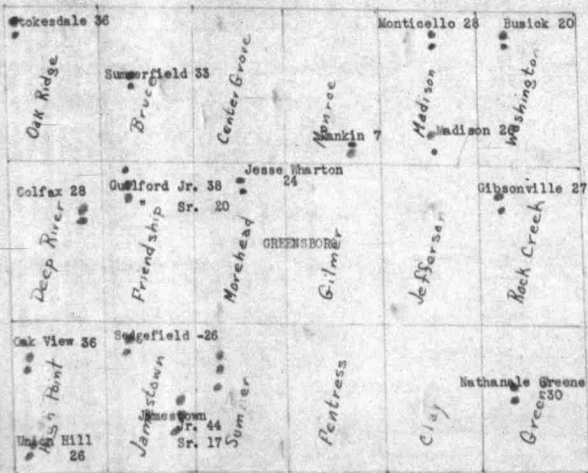 Stokesdale 36
Monticello 28
Busick 20
Oak Ridge
Summerfield 33
Bruce
Center Grove
Monroe
Madison
Washington
Rankin 7
Madison 26
Colfax 28
Guilford Jr. 38
" Sr. 20
Jesse Wharton
24
Gibsonville 27
Deep River
Friendship
Morehead
GREENSBORO
Gilmer
Jefferson
Rock Creek
Oak View 36
Sedgefield -26
High Point
Jamestown
Jamestown
Jr. 44
Sr. 17
Sumner
Fentress
Clay
Nathanale Greene
30
Greene
Union Hill
26